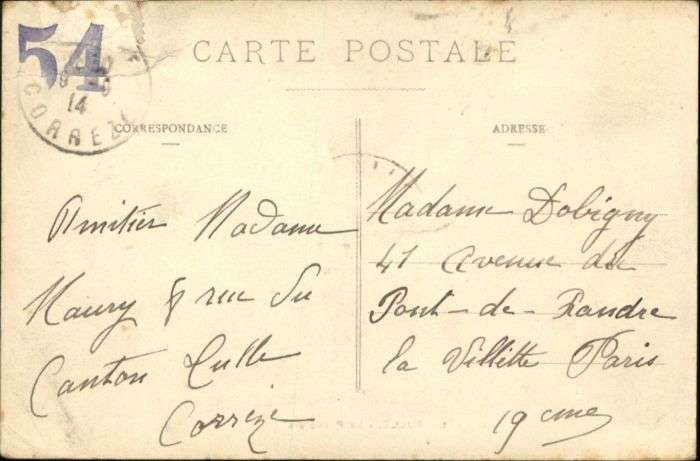 54
14
CORREZE
CARTE POSTALE
CORRESPONDANCE
ADRESSE
Amitiés Madame
Maury 8 rue du
Canton Tulle
Corrèze
Madame Dobigny
41 Avenue du
Pont-de-Flandre
la Villette Paris
19eme